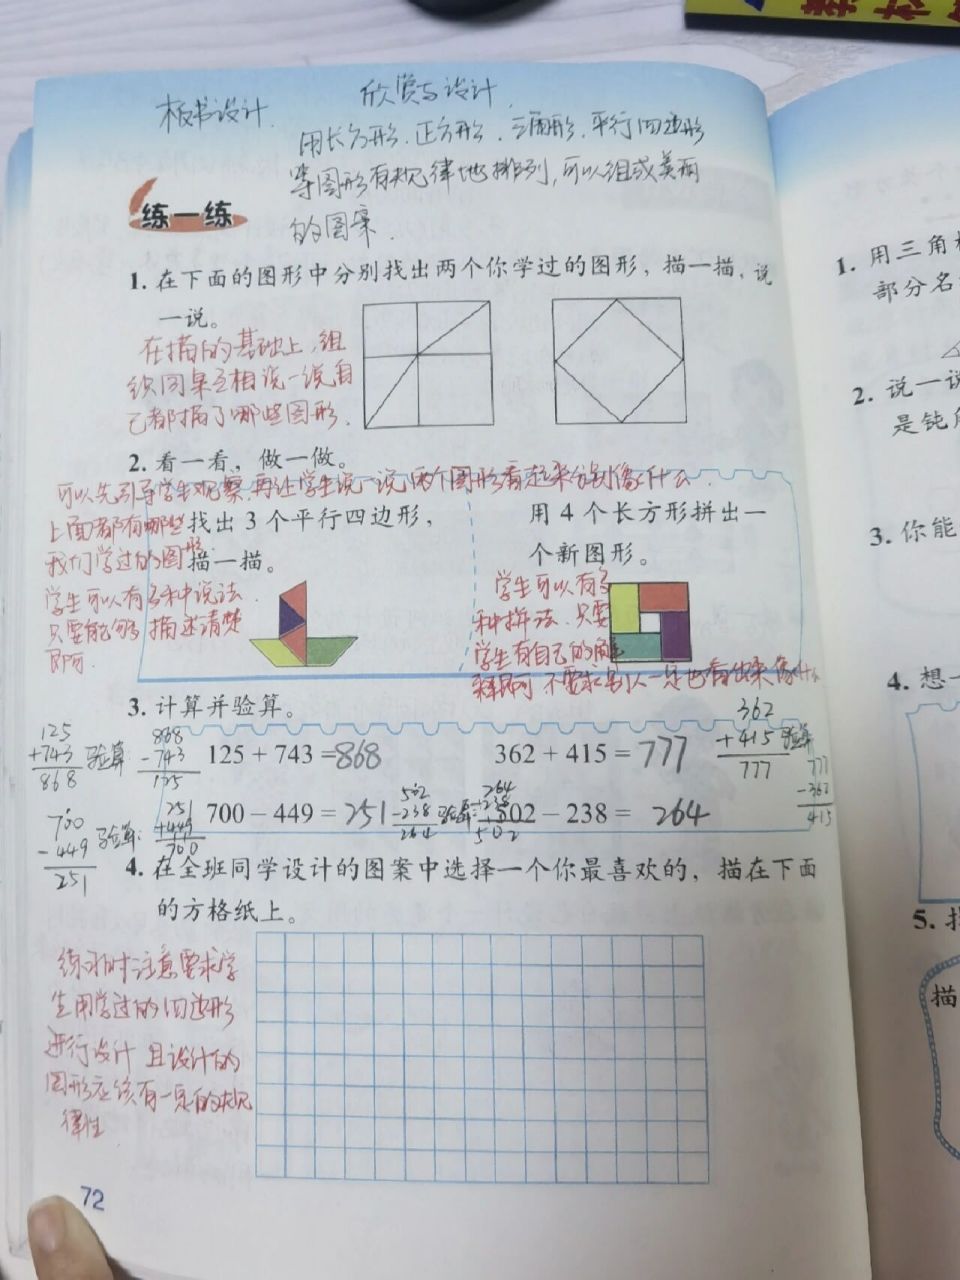 板书设计 欣赏与设计
用长方形、正方形、三角形、平行四边形
等图形有规律地排列,可以组成美丽
的图案.
练一练
1. 在下面的图形中分别找出两个你学过的图形,描一描,说
一说。
在描的基础上,组
织同桌互相说一说自
己都描了哪些图形.
2. 看一看,做一做。
可以先引导学生观察,再让学生说一说两个图形看起来分别像什么.
上面都有哪些
我们学过的图形.
学生可以有多种说法.
只要能够描述清楚
即可.
找出 3 个平行四边形,
描一描。
用 4 个长方形拼出一
个新图形。
学生可以有多
种拼法.只要
学生有自己的解
释即可 不要求别人一定也看出来像什么
3. 计算并验算。
125 + 743 =868
362 + 415 = 777
700 − 449 = 251
502 − 238 = 264
125
+743
868
验算:
868
-743
125
362
+415
777
验算
777
-362
415
700
-449
251
验算:
251
+449
700
502
-238
264
验算:
264
+238
502
4. 在全班同学设计的图案中选择一个你最喜欢的,描在下面
的方格纸上。
练习时注意要求学
生用学过的四边形
进行设计 且设计的
图形应该有一定的规
律性
72
1. 用三角
部分名
2. 说一说
是钝角
3. 你能
4. 想一
5. 找
描